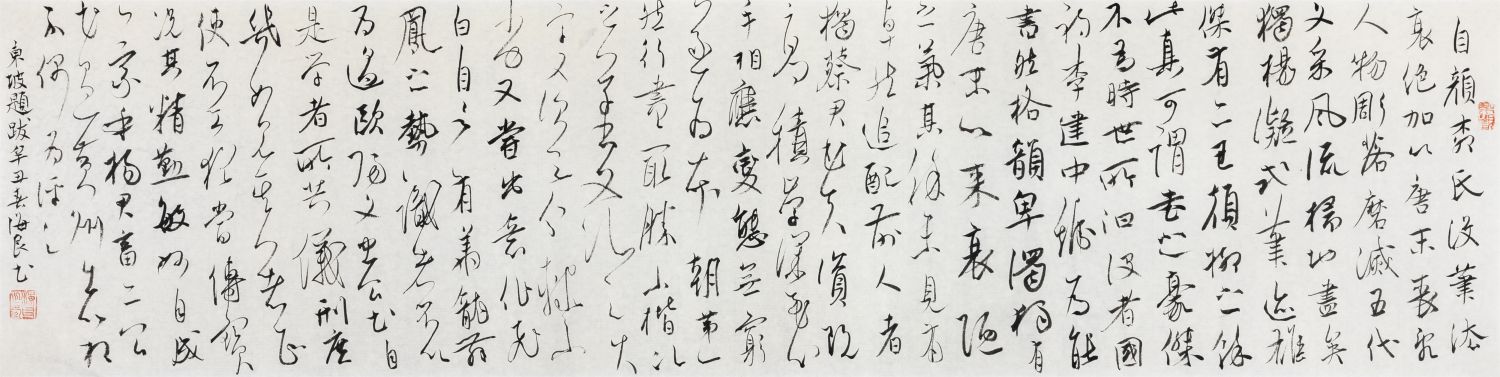 自顏柳氏没筆法
衰絶加以唐末喪亂
人物彫落磨滅五代
文采風流掃地盡矣
獨楊凝式筆迹雄
傑有二王顔柳之餘
此真可謂書之豪傑
不為時世所汩没者國
初李建中號為能
書然格韻卑濁猶有
唐末以來衰陋
之氣其餘未見有
卓然追配前人者
獨蔡君書天資既
高積學深至心
手相應變態無窮
遂為本朝第一
然行書最勝小楷次
之草書又次之大
字又次之分隸小
劣又嘗出意作飛
白自言有翔龍舞
鳳之勢識者不以
為過歐陽文忠公書自
是學者所共儀刑庶
幾如見其人者正
使不工猶當傳寶
況其精勤敏妙自成
一家乎楊君畜二公
書過黄州出以相
示偶為評之
東坡題跋辛丑春海良書